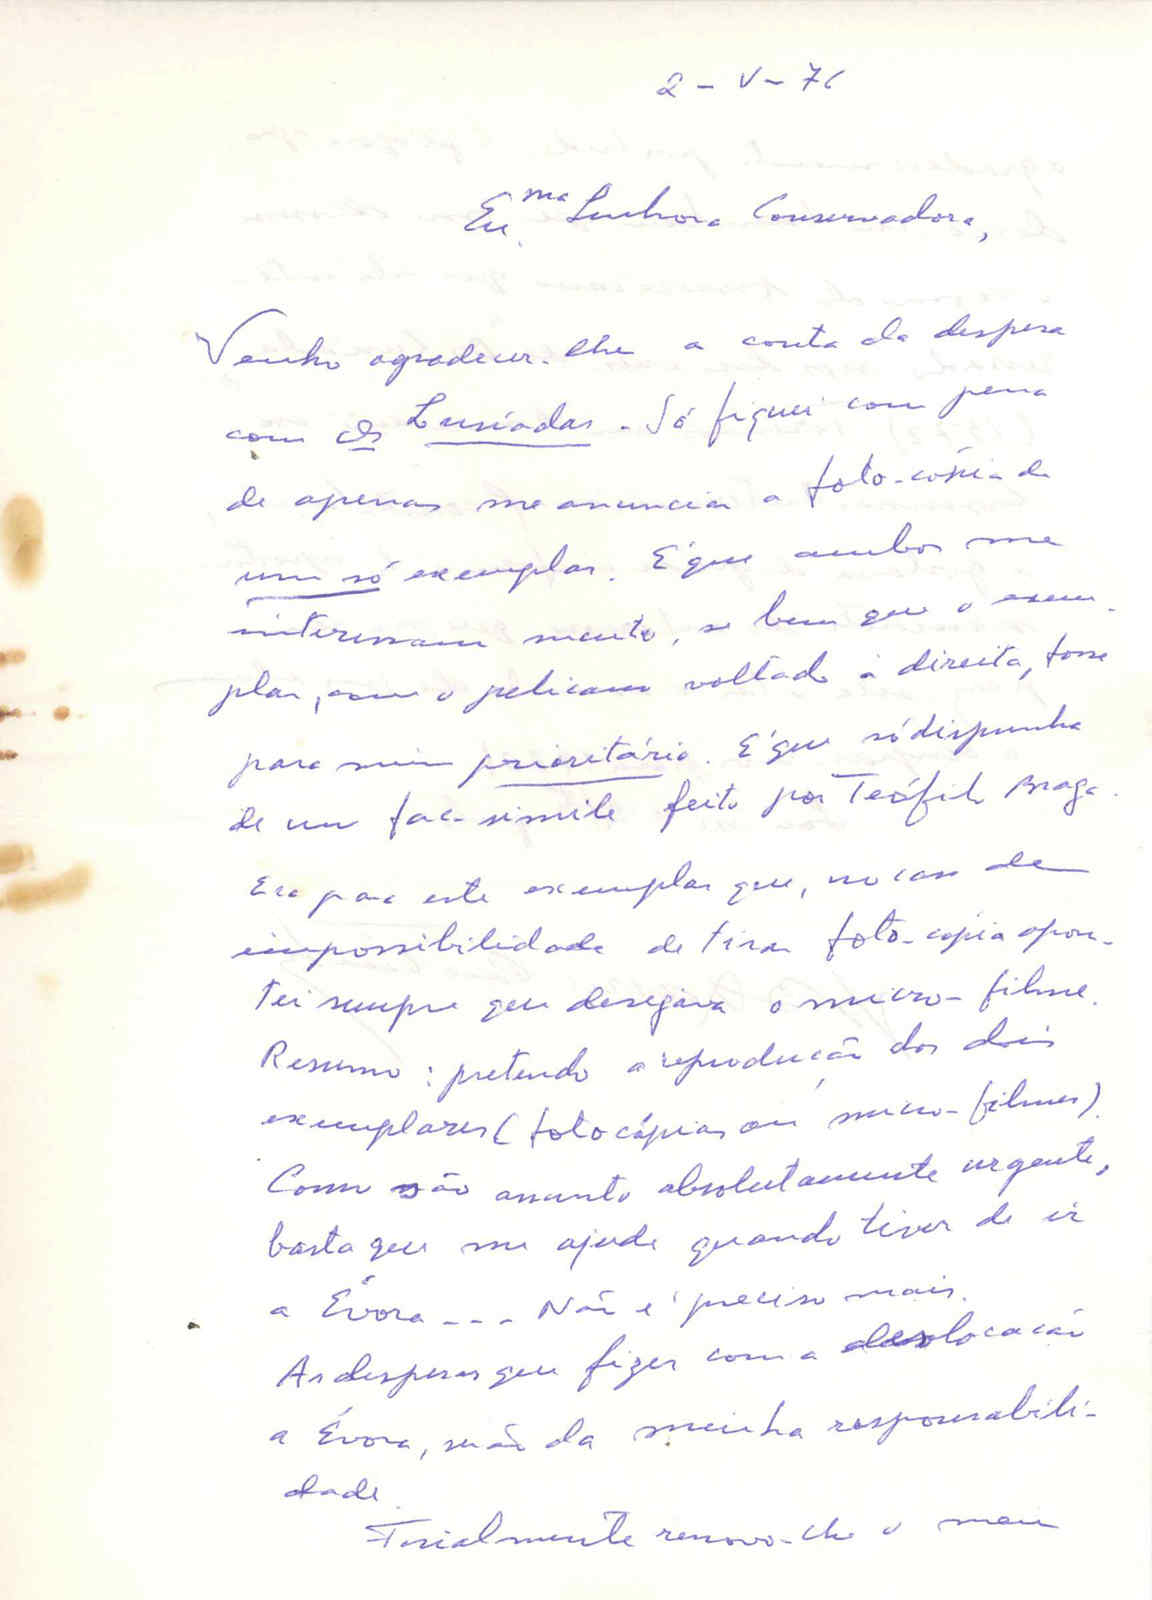 2 - V - 76
Ex.ma Senhora Conservadora,
Venho agradecer-lhe a conta da despesa
com Os Lusíadas. Só fiquei com pena
de apenas me anunciar a foto-cópia de
um só exemplar. É que ambos me
interessam muito, se bem que o exem-
plar, com o pelicano voltado à direita, fosse
para mim prioritário. É que só dispunha
de um fac-simile feito por Teófilo Braga.
Era para este exemplar que, no caso de
impossibilidade de tirar foto-cópia apon-
tei sempre que desejava o micro-filme.
Resumo: pretendo a reprodução dos dois
exemplares (fotocópias ou micro-filmes).
Como não assunto absolutamente urgente,
basta que me ajude quando tiver de ir
a Évora --- Não é preciso mais.
As despesas que fizer com a deslocação
a Évora, serão da minha responsabili-
dade.
Finalmente renovo-lhe o meu